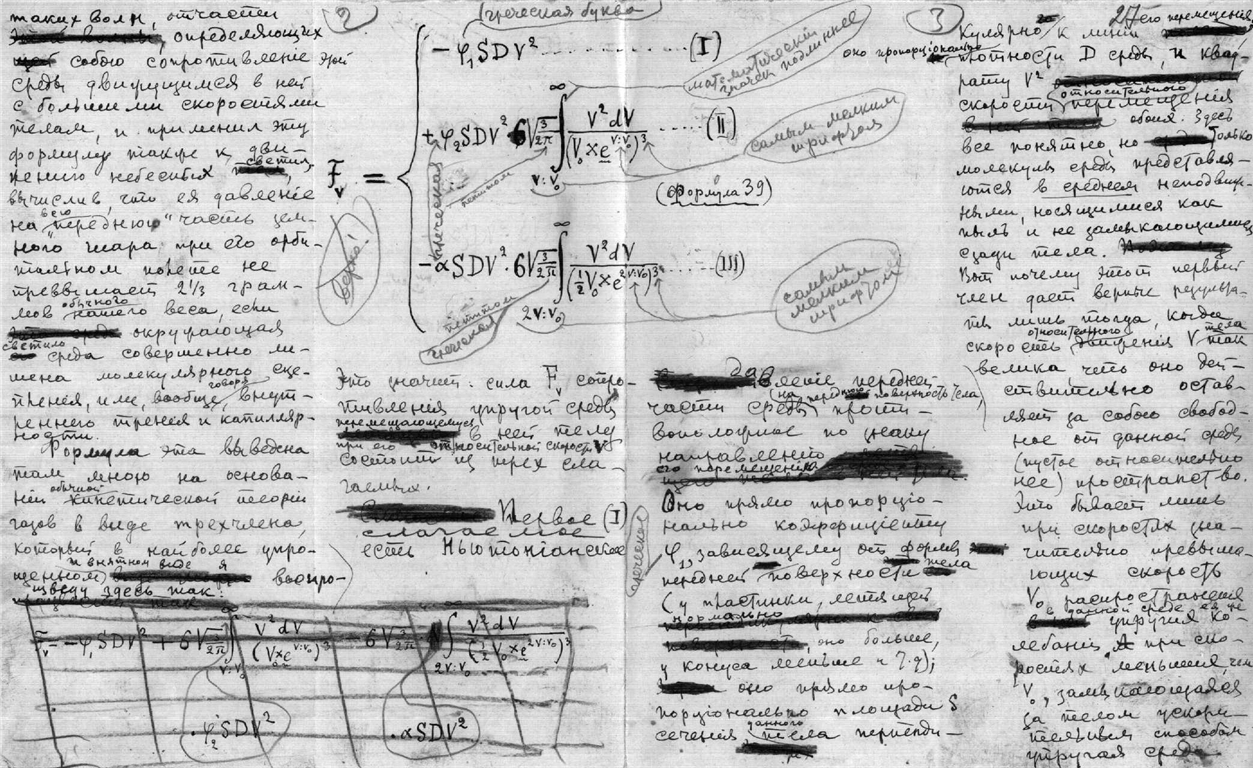 таких волн, отчасти
определяющих
собою сопротивленіе этой
среды движущимся в ней
с большими скоростями
телам, и применил эту
формулу также к дви-
женію небесных светил,
вычислив, что ея давленіе
на всю "переднюю" часть зем-
ного шара при его орби-
тальном полете не
превышает 2⅓ грам-
мов обычного нашего веса, если
окружающая
светило среда совершенно ли-
шена молекулярного сце-
пленія, или, вообще говоря, внут-
реннего тренія и капилляр-
ности.
Формула эта выведена
там мною на основа-
ніи обычной кинетической теоріи
газов в виде трехчлена,
который в наиболее упро-
щенном и понятном виде я воспро-
изведу здесь так:
F_v = -φ₁SDV² + 6√(3/2π) ∫ V²dV / (V₀×e^{V:V₀})³ 6√(3/2π) ∫ V²dV / (½V₀×e^{2V:V₀})³
·φ₂SDV² ·αSDV²
2
греческая буква
-φ₁SDV² ........ (I)
математическій значок подлиннее
+φ₂SDV² 6√(3/2π) ∫ V²dV / (V₀×e^{V:V₀})³ ...... (II)
самым мелким шрифтом
F_v =
греческая
петитом
V:V₀
(Формула 39)
-αSDV²·6√(3/2π) ∫ V²dV / (½V₀×e^{2V:V₀})³ ...... (III)
самым мелким шрифтом
петитом
греческая
2V:V₀
Это значит: сила F_v сопро-
тивленія упругой среды
перемещающемуся в ней телу
при его относительной скорости V
состоит из трех сла-
гаемых.
Первое (I)
слагаемое
есть Ньютоніанское
давленіе передней
части среды (на переднюю поверхность тела) проти-
воположное по знаку
направленію
его перемещенія
Оно прямо пропорціо-
нально коэффиціенту
φ₁, зависящему от формы
греческое
передней поверхности тела
(у пластинки, летящей
нормально
оно больше,
у конуса меньше и т.д);
оно прямо про-
порціонально площади S
сеченія данного тела перпенди-
3
27
кулярно к линіи его перемещенія
оно пропорціонально
плотности D среды, и квад-
рату V²
скорости относительного перемещенія
обоих. Здесь
все понятно, но только
молекулы среды представля-
ются в среднем неподвиж-
ными, носящимися как
пыль и не замыкающимися
сзади тела.
Вот почему этот первый
член дает верные результа-
ты лишь тогда, когда
скорость относительного движенія V тела так
велика что оно дей-
ствительно остав-
ляет за собою свобод-
ное от данной среды
(пустое относительно
нее) пространство.
Это бывает лишь
при скоростях зна-
чительно превыша-
ющих скорость
V₀ распространенія
в данной среде ея
упругих ко-
лебаній. А при ско-
ростях меньших, чем
V₀, замыкающаяся
за телом ускори-
тельным способом
упругая среда